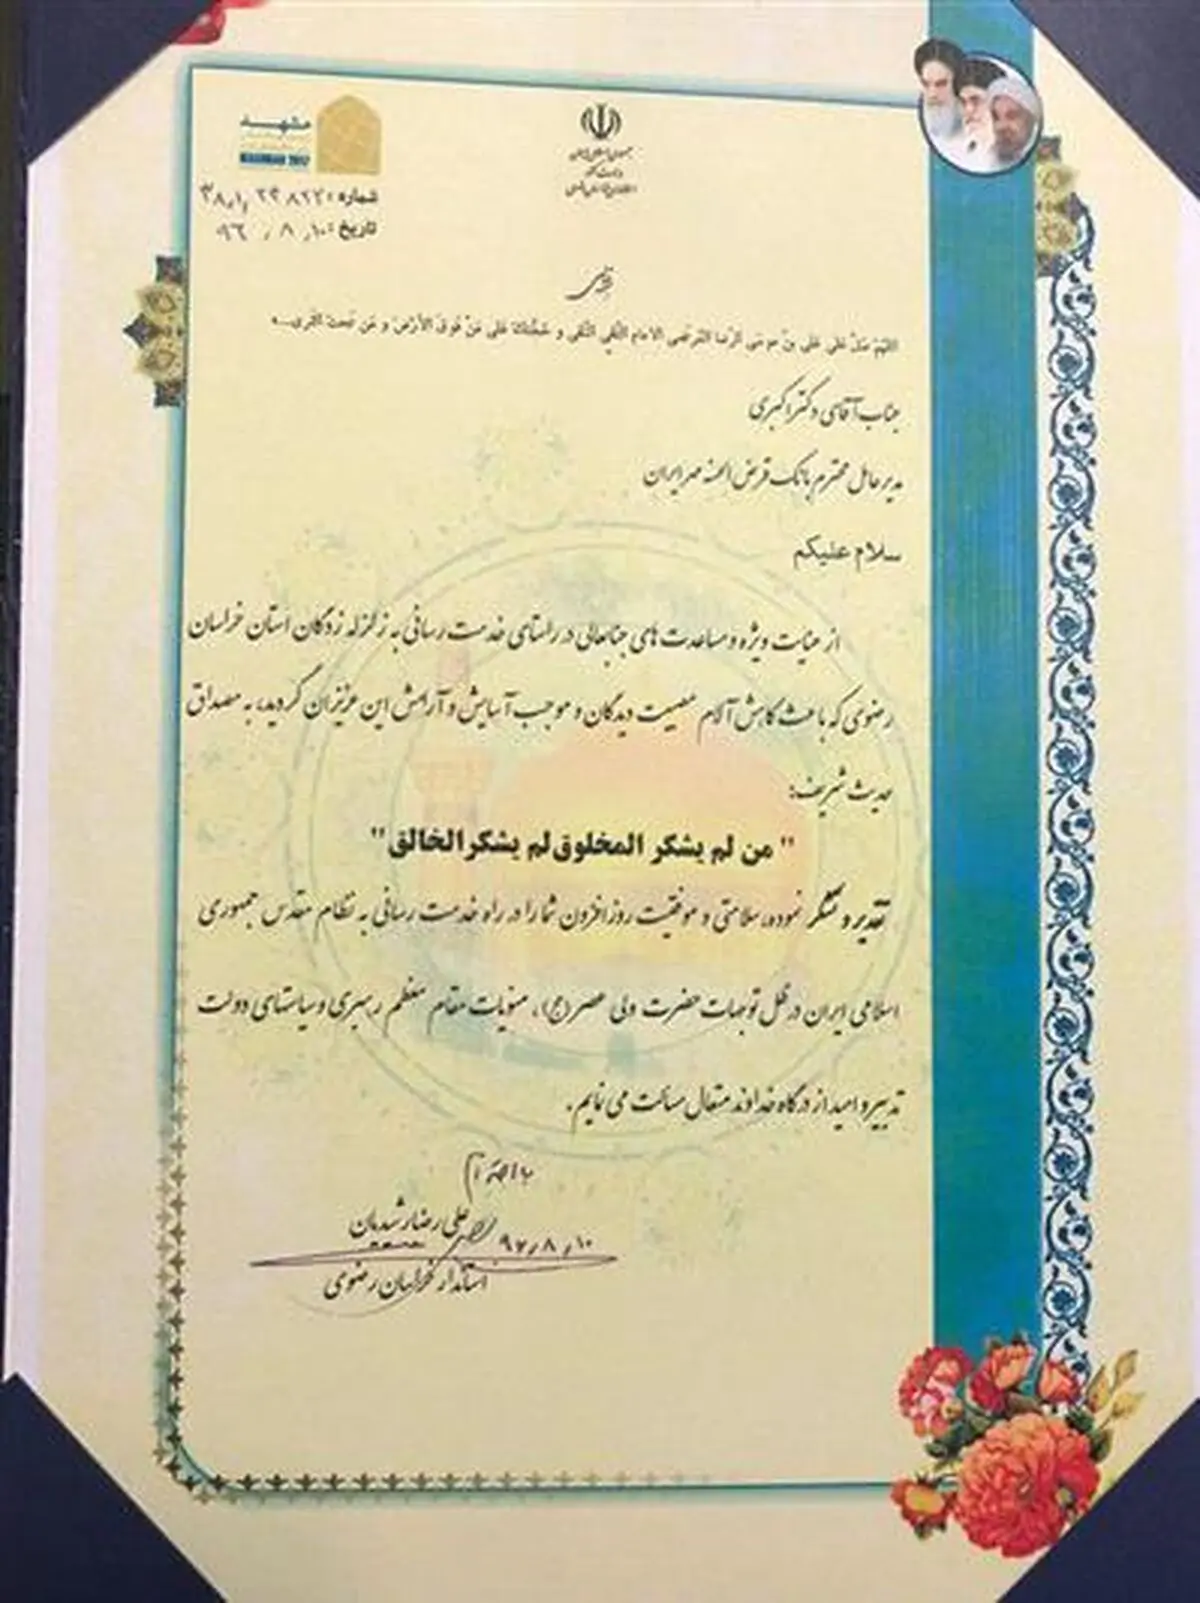 مشهد
MASHHAD 2017
جمهوری اسلامی ایران
وزارت کشور
استانداری خراسان رضوی
شماره: ۳۸٫۱٫۲۴۸۲۲
تاریخ: ۹۶٫۸٫۱۰
بسمه تعالی
اللهم صل علی علی بن موسی الرضا المرتضی الامام التقی النقی و حجتک علی من فوق الارض و من تحت الثری...
جناب آقای دکتر اکبری
مدیرعامل محترم بانک قرض الحسنه مهر ایران
سلام علیکم
از عنایت ویژه و مساعدت های جنابعالی در راستای خدمت رسانی به زلزله زدگان استان خراسان
رضوی که باعث کاهش آلام مصیبت دیدگان و موجب آسایش و آرامش این عزیزان گردید، به مصداق
حدیث شریف:
" من لم یشکر المخلوق لم یشکر الخالق "
تقدیر و تشکر نموده، سلامتی و موفقیت روزافزون شما را در راه خدمت رسانی به نظام مقدس جمهوری
اسلامی ایران در ظل توجهات حضرت ولی عصر(عج)، منویات مقام معظم رهبری و سیاستهای دولت
تدبیر و امید از درگاه خداوند متعال مسالت می نمایم.
با احترام
علی رضا رشیدیان
۹۶٫۸٫۱۰
استاندار خراسان رضوی